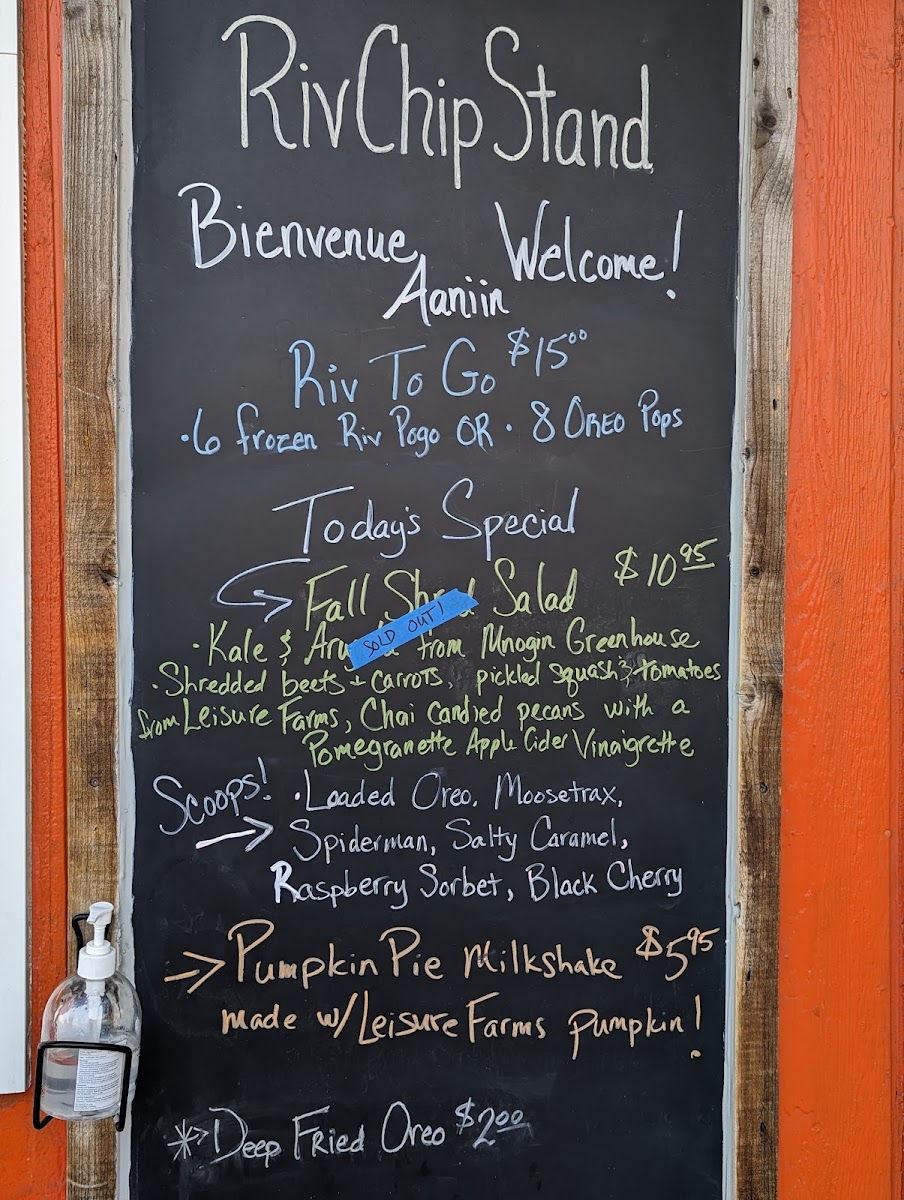 RivChipStand
Bienvenue Welcome!
Aaniin
Riv To Go $15.00
·6 frozen Riv Pogo OR · 8 OREO Pops
Today's Special
Fall Salad $10.95
SOLD OUT!
·Kale & from Mnogin Greenhouse
·Shredded beets + carrots, pickled squash & tomatoes
from Leisure Farms, Chai Candied pecans with a
Pomegranette Apple Cider Vinaigrette
Scoops! ·Loaded Oreo, Moosetrax,
Spiderman, Salty Caramel,
Raspberry Sorbet, Black Cherry
Pumpkin Pie Milkshake $5.95
made w/ Leisure Farms pumpkin!
Deep Fried Oreo $2.00